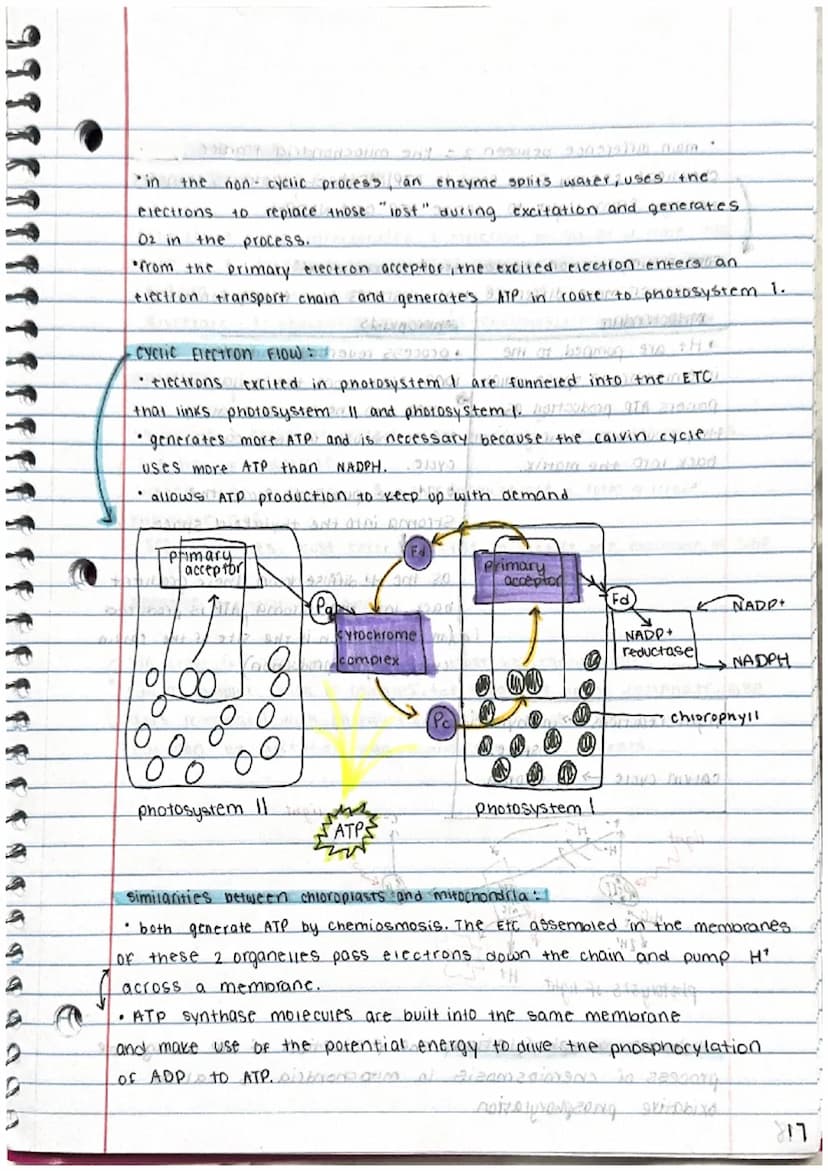 •in the non-cyclic process, an enzyme splits water, uses the
electrons to replace those "lost" during excitation and generates
O2 in the process.
•from the primary electron acceptor, the excited electron enters an
electron transport chain and generates ATP in route to photosystem I.
Cyclic Electron Flow:
• Electrons excited in photosystem I are funneled into the ETC
that links photosystem II and photosystem I.
• generates more ATP and is necessary because the calvin cycle
uses more ATP than NADPH.
• allows ATP production to keep up with demand
primary
acceptor
Pq
cytochrome
complex
Fd
Pc
primary
acceptor
Fd
NADP+
NADP+
reductase
NADPH
chlorophyll
photosystem II
ATP
photosystem I
similarities between chloroplasts and mitochondria:
• both generate ATP by chemiosmosis. The ETC assembled in the membranes
of these 2 organelles pass electrons down the chain and pump H+
across a membrane.
• ATP synthase molecules are built into the same membrane
and make use of the potential energy to drive the phosphorylation
of ADP to ATP.
17